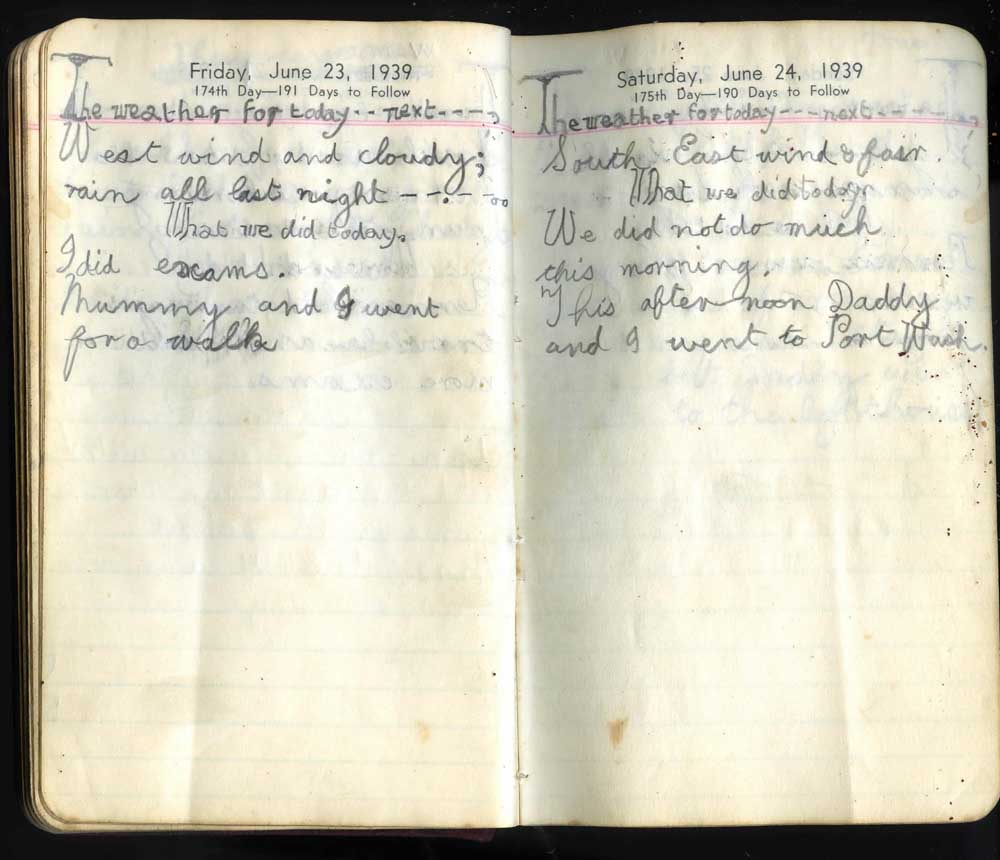 Friday, June 23, 1939
174th Day—191 Days to Follow
The weather for today -- next ----
West wind and cloudy;
rain all last night --.-..
What we did today.
I did exams.
Mummy and I went
for a walk
Saturday, June 24, 1939
175th Day—190 Days to Follow
The weather for today --- next -----
South East wind & fair.
What we did today.
We did not do much
this morning.
This after noon Daddy
and I went to Port Wash.
to the lighthouse